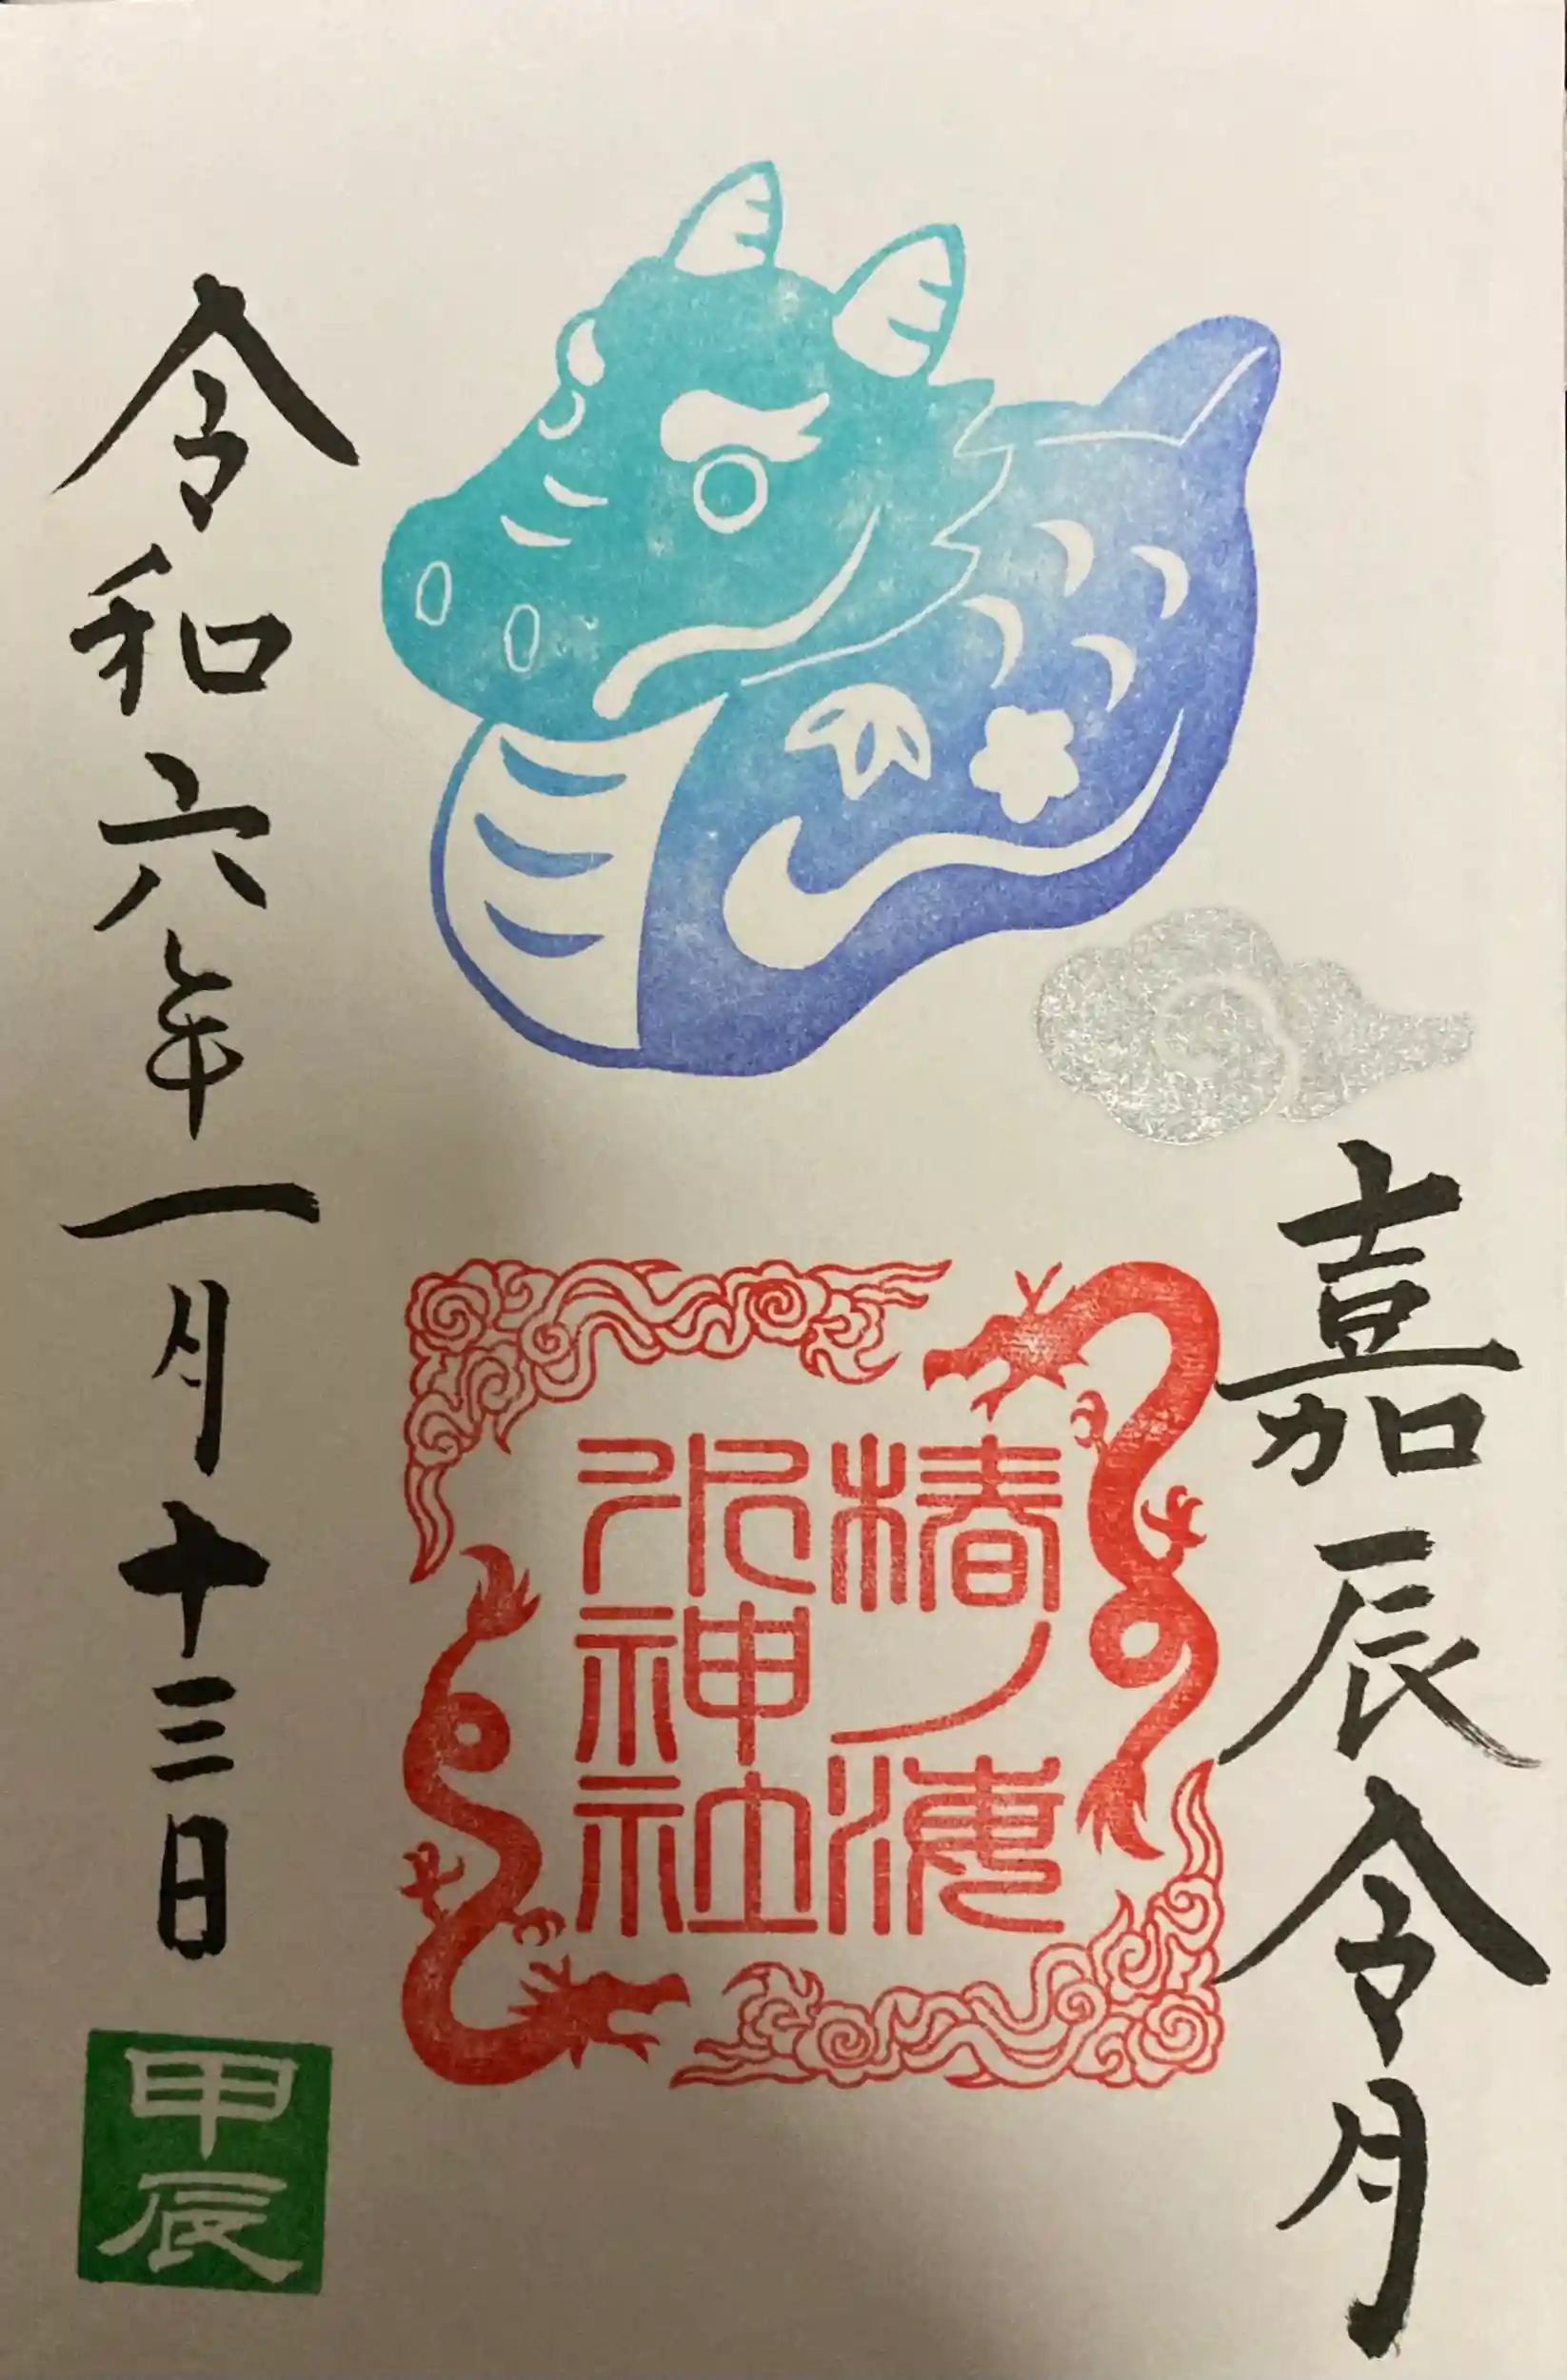 嘉辰令月
椿ノ海
水神社
令和六年一月十三日
甲辰